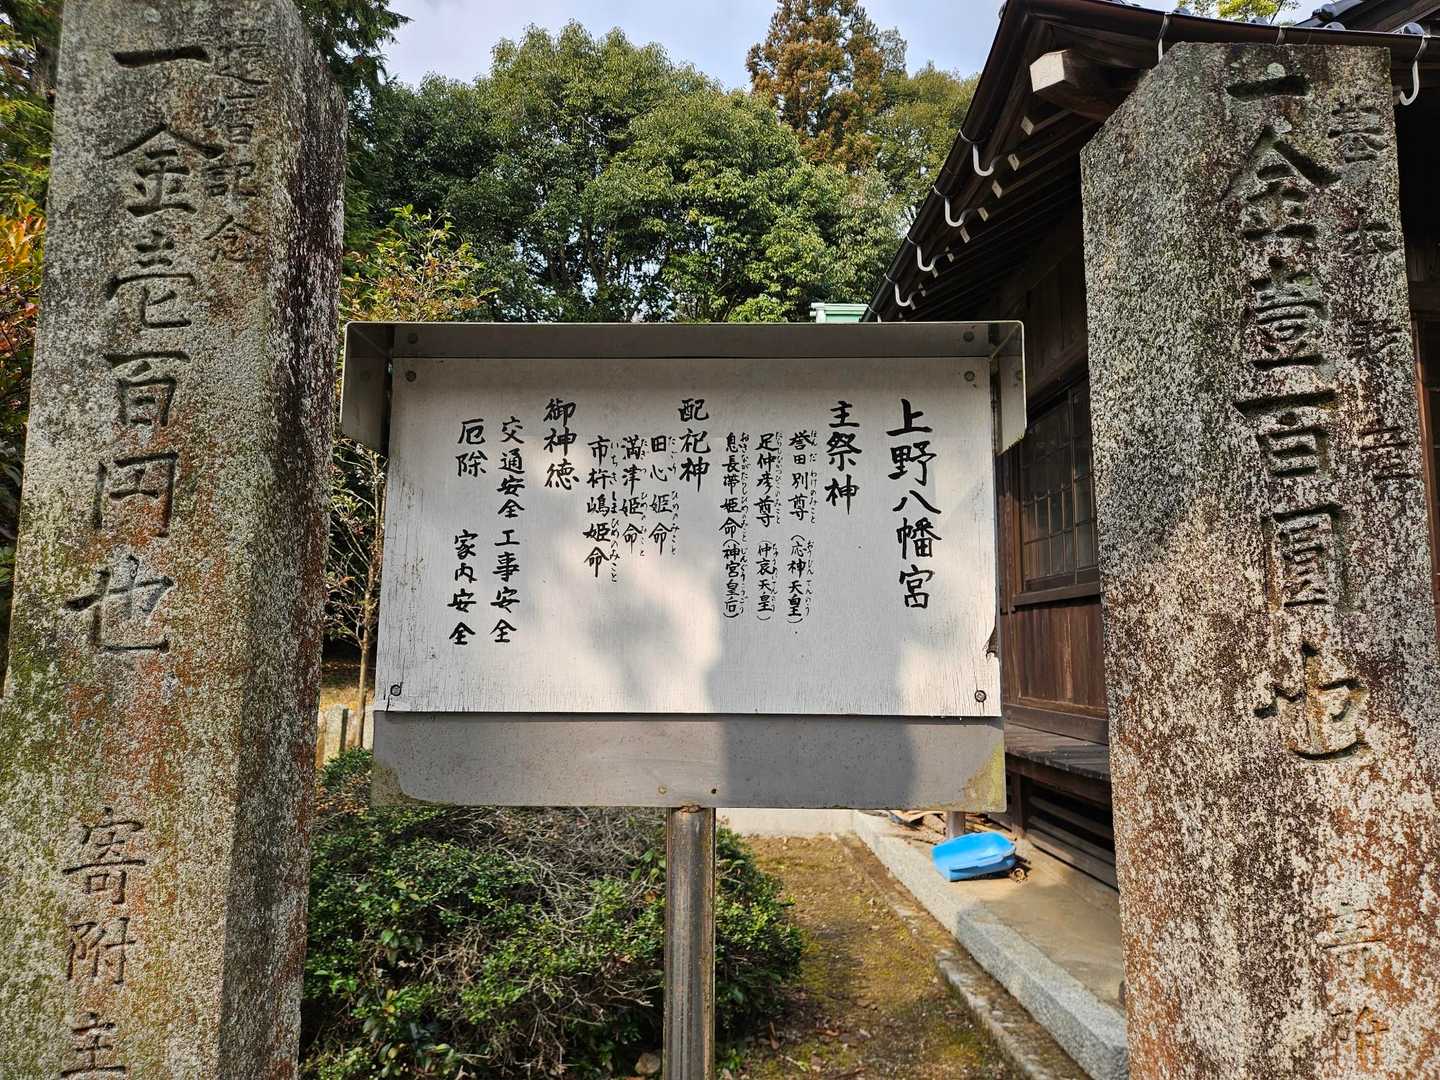 上野八幡宮
主祭神
誉田別尊(応神天皇)
足仲彦尊(仲哀天皇)
息長帯姫命(神宮皇后)
配祀神
田心姫命
満津姫命
市杵嶋姫命
御神徳
交通安全 工事安全
厄除 家内安全
基本財産
一金壹百圓也
寄附
記念
一金壱百円也
寄附主